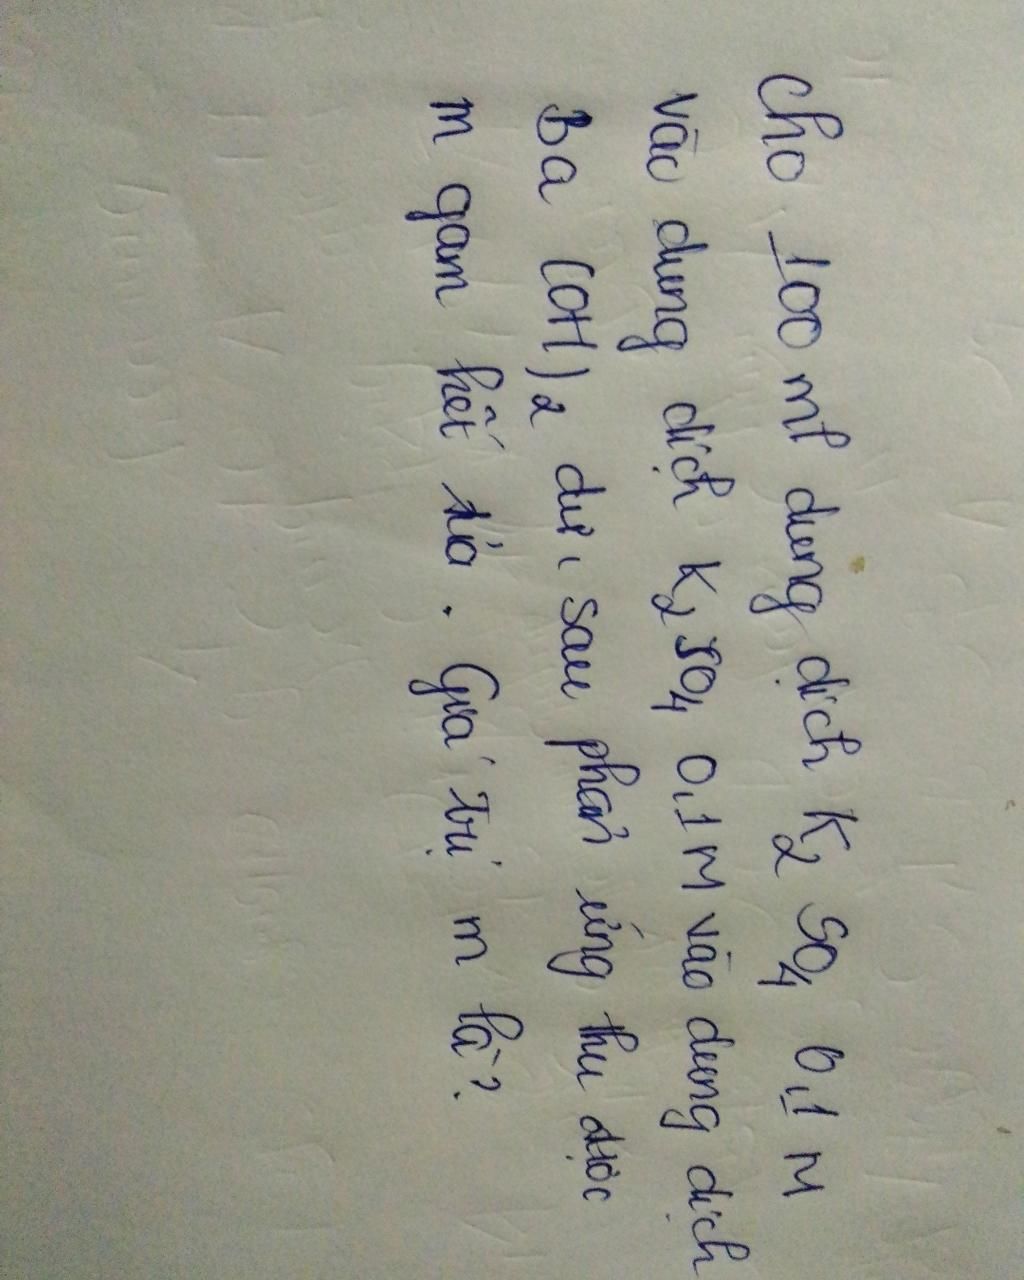 Cho 100 ml dung dịch K2SO4 0,1 M
vào dung dịch K2SO4 0,1 M vào dung dịch
Ba (OH)2 dư, sau phản ứng thu được
m gam kết tủa. Giá trị m là?